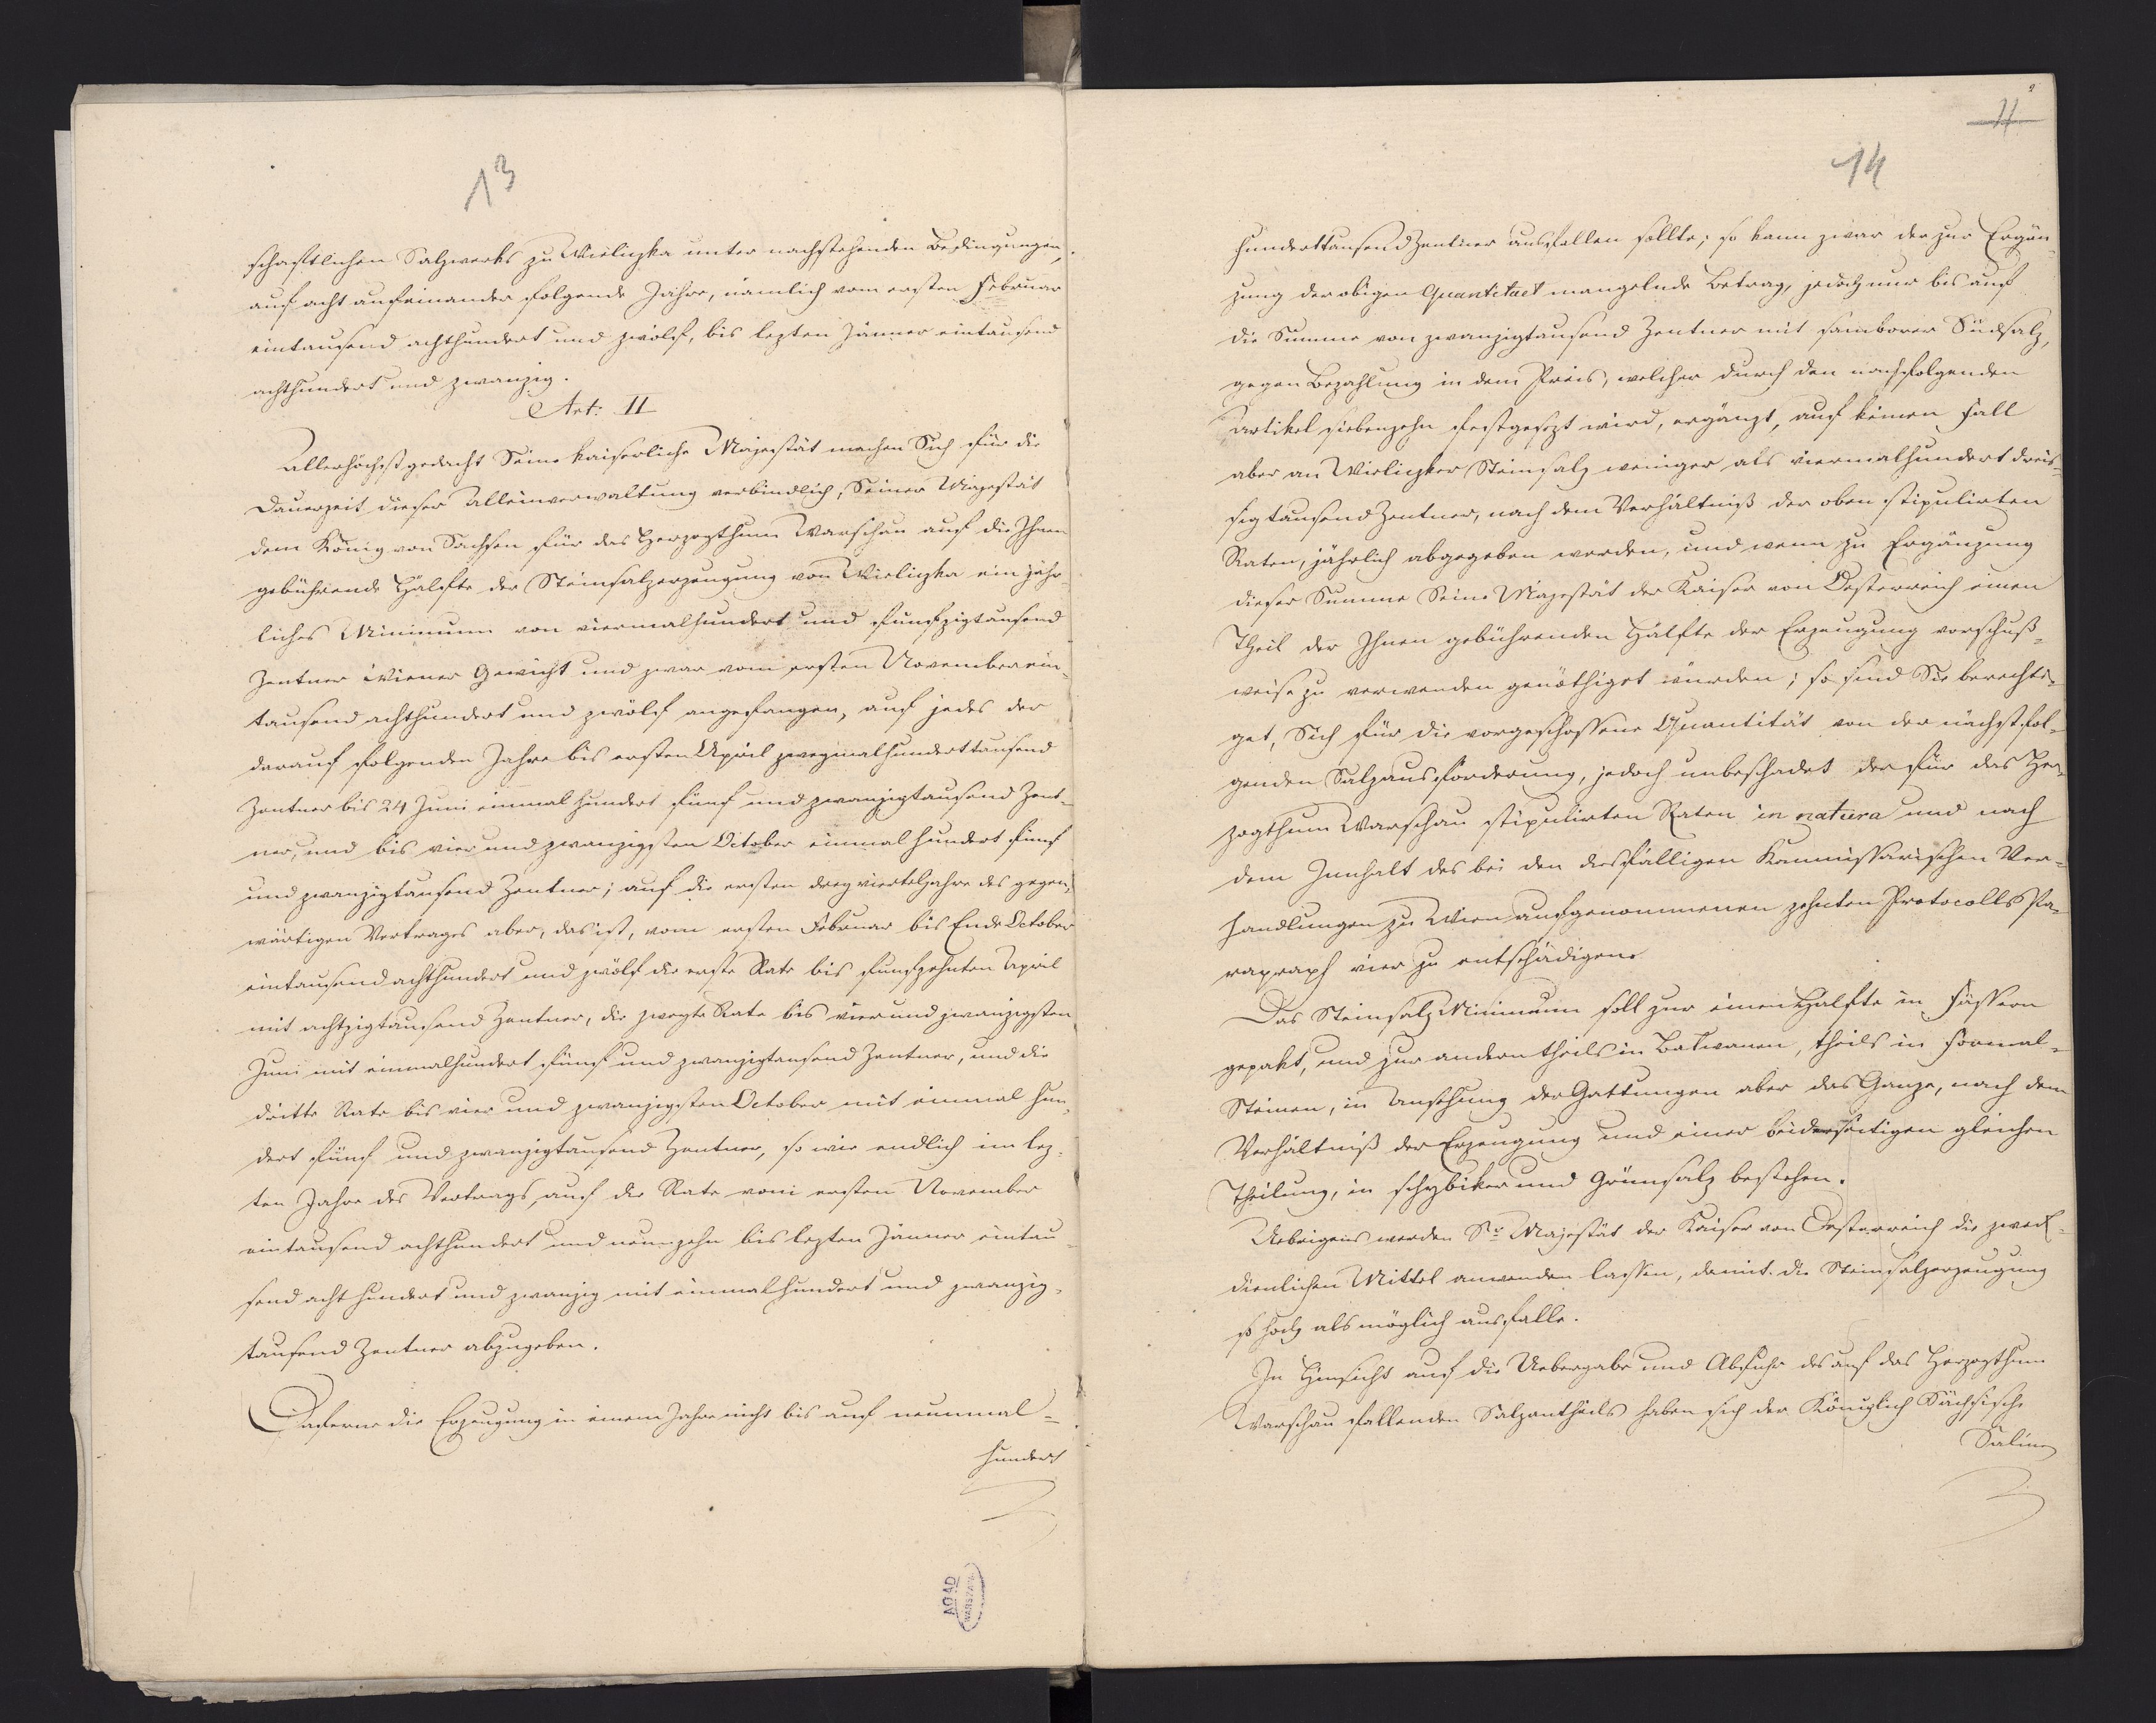 13
schaftlichen Salzwerks zu Wieliczka unter nachstehenden Bedingungen,
auf acht aufeinander folgende Jahre, nämlich vom ersten Februar
eintausend achthundert und zwölf, bis lezten Jänner eintausend
achthundert und zwanzig.
Art: II
Allerhöchstgedacht Seine kaiserliche Majestät machen Sich für die
Dauerzeit dieser Alleinverwaltung verbindlich, Seiner Majestät
dem König von Sachsen für das Herzogthum Warschau auf die Ihnen
gebührende Hälfte der Steinsalzerzeugung von Wieliczka ein jähr-
liches Minimum von viermalhundert und funfzigtausend
Zentner Wiener Gewicht und zwar vom ersten November ein-
tausend achthundert und zwölf angefangen, auf jedes der
darauf folgenden Jahre bis ersten April zweymalhunderttausend
Zentner bis 24 Juni einmal hundert fünf und zwanzigtausend Zent-
ner, und bis vier und zwanzigsten October einmal hundert fünf
und zwanzigtausend Zentner; auf die ersten drey vierteljahre des gegen-
wärtigen Vertrages aber, das ist, vom ersten Februar bis Ende October
eintausend achthundert und zwölf die erste Rate bis funfzehnten April
mit achtzigtausend Zentner, die zweyte Rate bis vier und zwanzigsten
Juni mit einmalhundert fünf und zwanzigtausend Zentner, und die
dritte Rate bis vier und zwanzigsten October mit einmal hun-
dert fünf und zwanzigtausend Zentner, so wie endlich im lez-
ten Jahre des Vertrags auf die Rate vom ersten November
eintausend achthundert und neunzehn bis lezten Jänner eintau-
send acht hundert und zwanzig mit einmalhundert und zwanzig-
tausend Zentner abzugeben.
Daferne die Erzeugung in einem Jahre nicht bis auf neunmal-
hundert
AGAD
WARSZAWA
11
14
hunderttausend Zentner ausfallen sollte; so kann zwar der zur Ergän-
zung der obigen Quantitaet mangelnde Betrag, jedoch nur bis auf
die Summe von zwanzigtausend Zentner mit samborer Sudsalz,
gegen Bezahlung in dem Preis, welcher durch den nachfolgenden
Artikel siebenzehn festgesezt wird, ergänzt, auf keinen Fall
aber an Wieliczker Steinsalz weniger als viermalhundert dreis-
sigtausend Zentner, nach dem Verhältniß der oben stipulirten
Raten, jährlich abgegeben werden, und wenn zu Ergänzung
dieser Summe Seine Majestät der Kaiser von Oesterreich einen
Theil der Ihnen gebührenden Hälfte der Erzeugung vorschuß-
weise zu verwenden genöthiget würden; so sind Sie berechti-
get, Sich für die vorgeschossene Quantität von der nächst fol-
genden Salzausförderung, jedoch unbeschadet der für das Her-
zogthum Warschau stipulirten Raten in natura und nach
dem Innhalt des bei den diesfälligen Kommissarischen Ver-
handlungen zu Wien aufgenommenen zehnten Protocolls Pa-
ragraph vier zu entschädigen.
Das Steinsalz Minimum soll zur einen Hälfte in Fässern
gepakt, und zur andern theils in Balwanen, theils in Formal-
Steinen, in Ansehung der Gattungen aber das Ganze, nach dem
Verhältniß der Erzeugung und einer beiderseitigen gleichen
Theilung, in schybiker und Grünsalz bestehen.
Uebrigens werden Se Majestät der Kaiser von Oesterreich die zweck-
dienlichen Mittel anwenden lassen, damit die Steinsalzerzeugung
so hoch als möglich ausfalle.
In Hinsicht auf die Uebergabe und Abfuhr des auf das Herzogthum
Warschau fallenden Salzantheils haben sich der Königlich Sächsische
Salinen